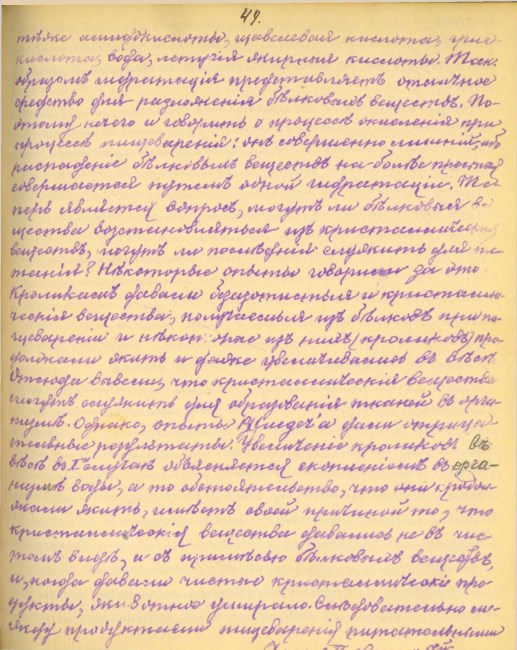 49.
также амидокислоты, щавелевая кислота, угле
кислота, вода, летучія жирныя кислоты. Так.
образомъ гидратація представляетъ отличное
средство для разложенія бѣлковыхъ веществъ. По-
этому нечего и говорить о процессѣ окисленія при
процессѣ пищеваренія: онъ совершенно лишній, ибо
распаденіе бѣлковыхъ веществъ на болѣе простыя
совершается путемъ одной гидратаціи. Те-
перь является вопросъ, могутъ ли бѣлковыя ве
щества возстановляться изъ кристаллическихъ
веществъ, могутъ ли послѣднія служить для пи-
танія? Нѣкоторые опыты говорили за это.
Кроликамъ давали безазотистыя и кристалли-
ческія вещества, получаемыя изъ бѣлковъ при пи-
щевареніи и нѣкот. изъ нихъ (кроликовъ) про-
должали жить и даже увеличивались въ вѣсѣ.
Отсюда вывели, что кристаллическія вещества
могутъ служить для образованія тканей въ орга-
низмѣ. Однако, опыты дали отрица-
тельные результаты. Увеличеніе кроликовъ въ
вѣсѣ объясняется скопленіемъ въ орга-
низмѣ воды, а то обстоятельство, что они продол-
жали жить, имѣетъ своей причиной то, что
кристаллическія вещества давались не въ чис-
томъ видѣ, а съ примѣсью бѣлковыхъ веществъ,
и, когда давали чистые кристаллическіе про-
дукты, животное умирало. Слѣдовательно ме-
жду продуктами пищеваренія питательными